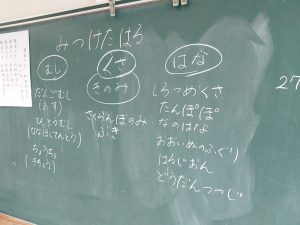 みつけたはる
むし
だんごむし
(あす)
てんとうむし
(ななほしてんとう)
ちょうちょ
くさ
きのみ
さくらんぼのみ
ふき
はな
しろつめくさ
たんぽぽ
なのはな
おおいぬのふぐり
はるじおん
どうだんつつじ
27